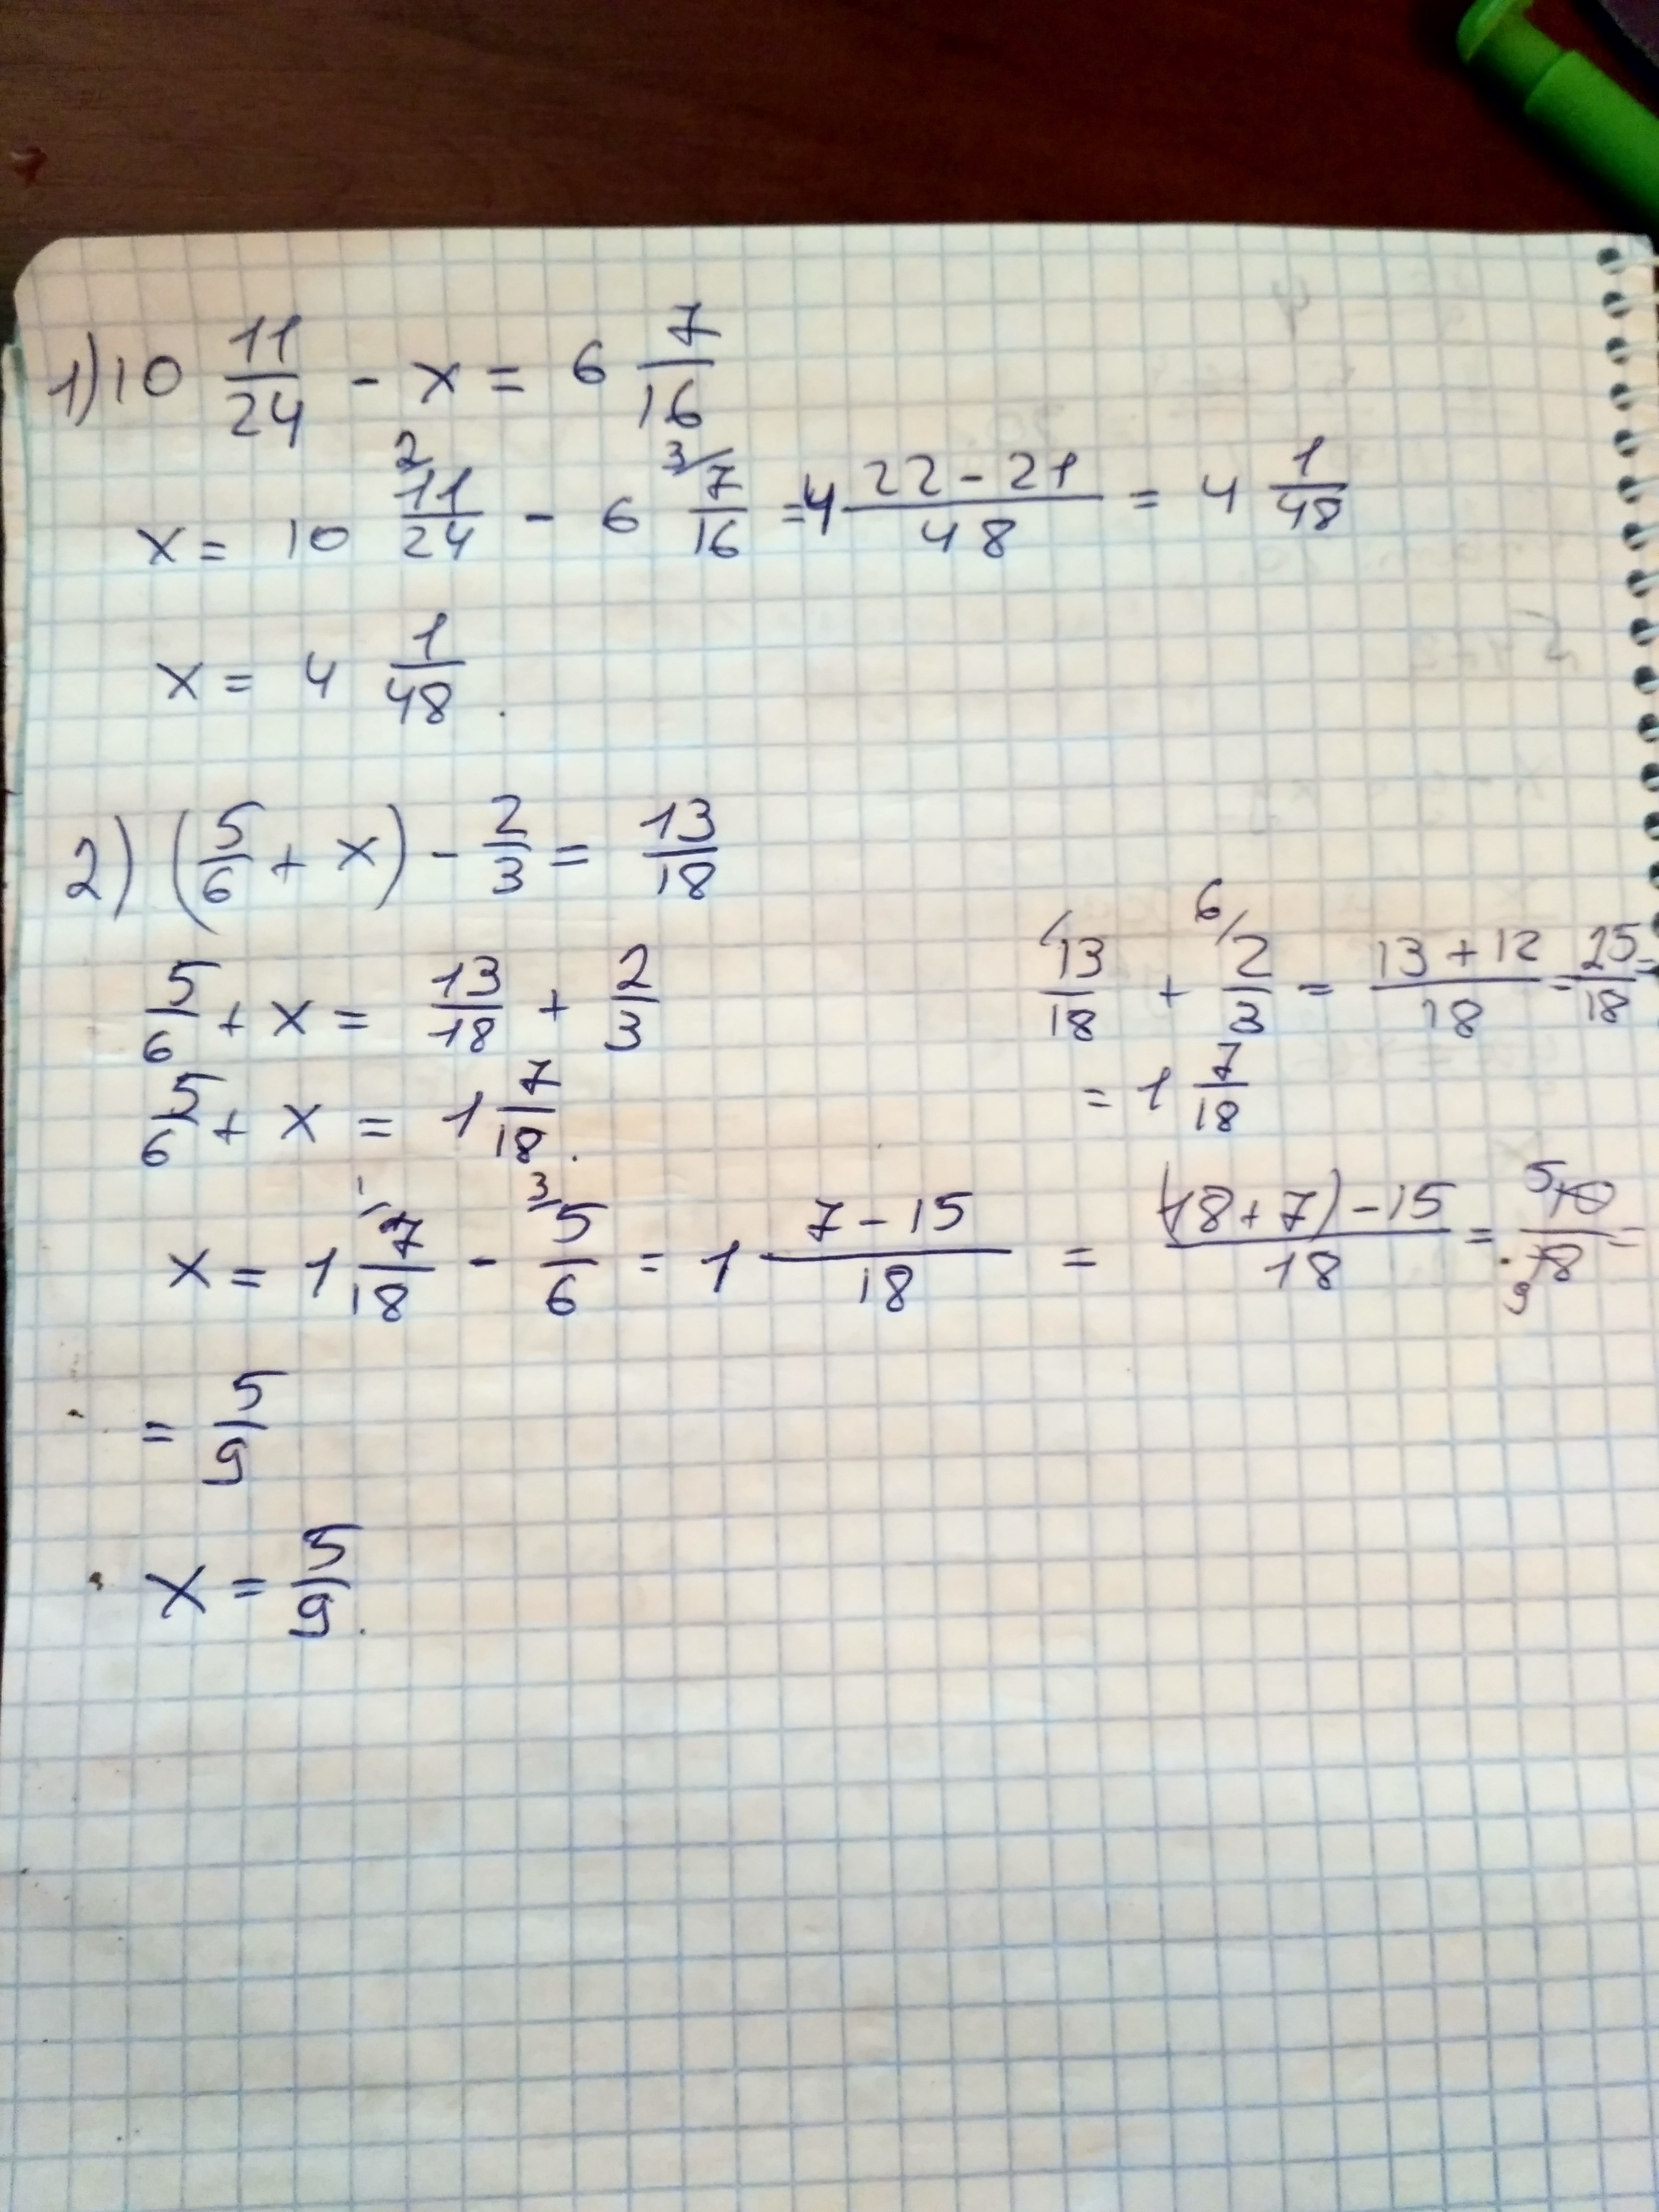 1) 10 11/24 - x = 6 7/16
x = 10 2/ 11/24 - 6 3/ 7/16 = 4 (22 - 21)/48 = 4 1/48
x = 4 1/48.
2) (5/6 + x) - 2/3 = 13/18
5/6 + x = 13/18 + 2/3
/ 13/18 + 6/ 2/3 = (13 + 12)/18 = 25/18 =
= 1 7/18
5/6 + x = 1 7/18.
x = 1 1/ 7/18 - 3/ 5/6 = 1 (7 - 15)/18 = ((18 + 7) - 15)/18 = 5 10/18 9 =
= 5/9
x = 5/9.